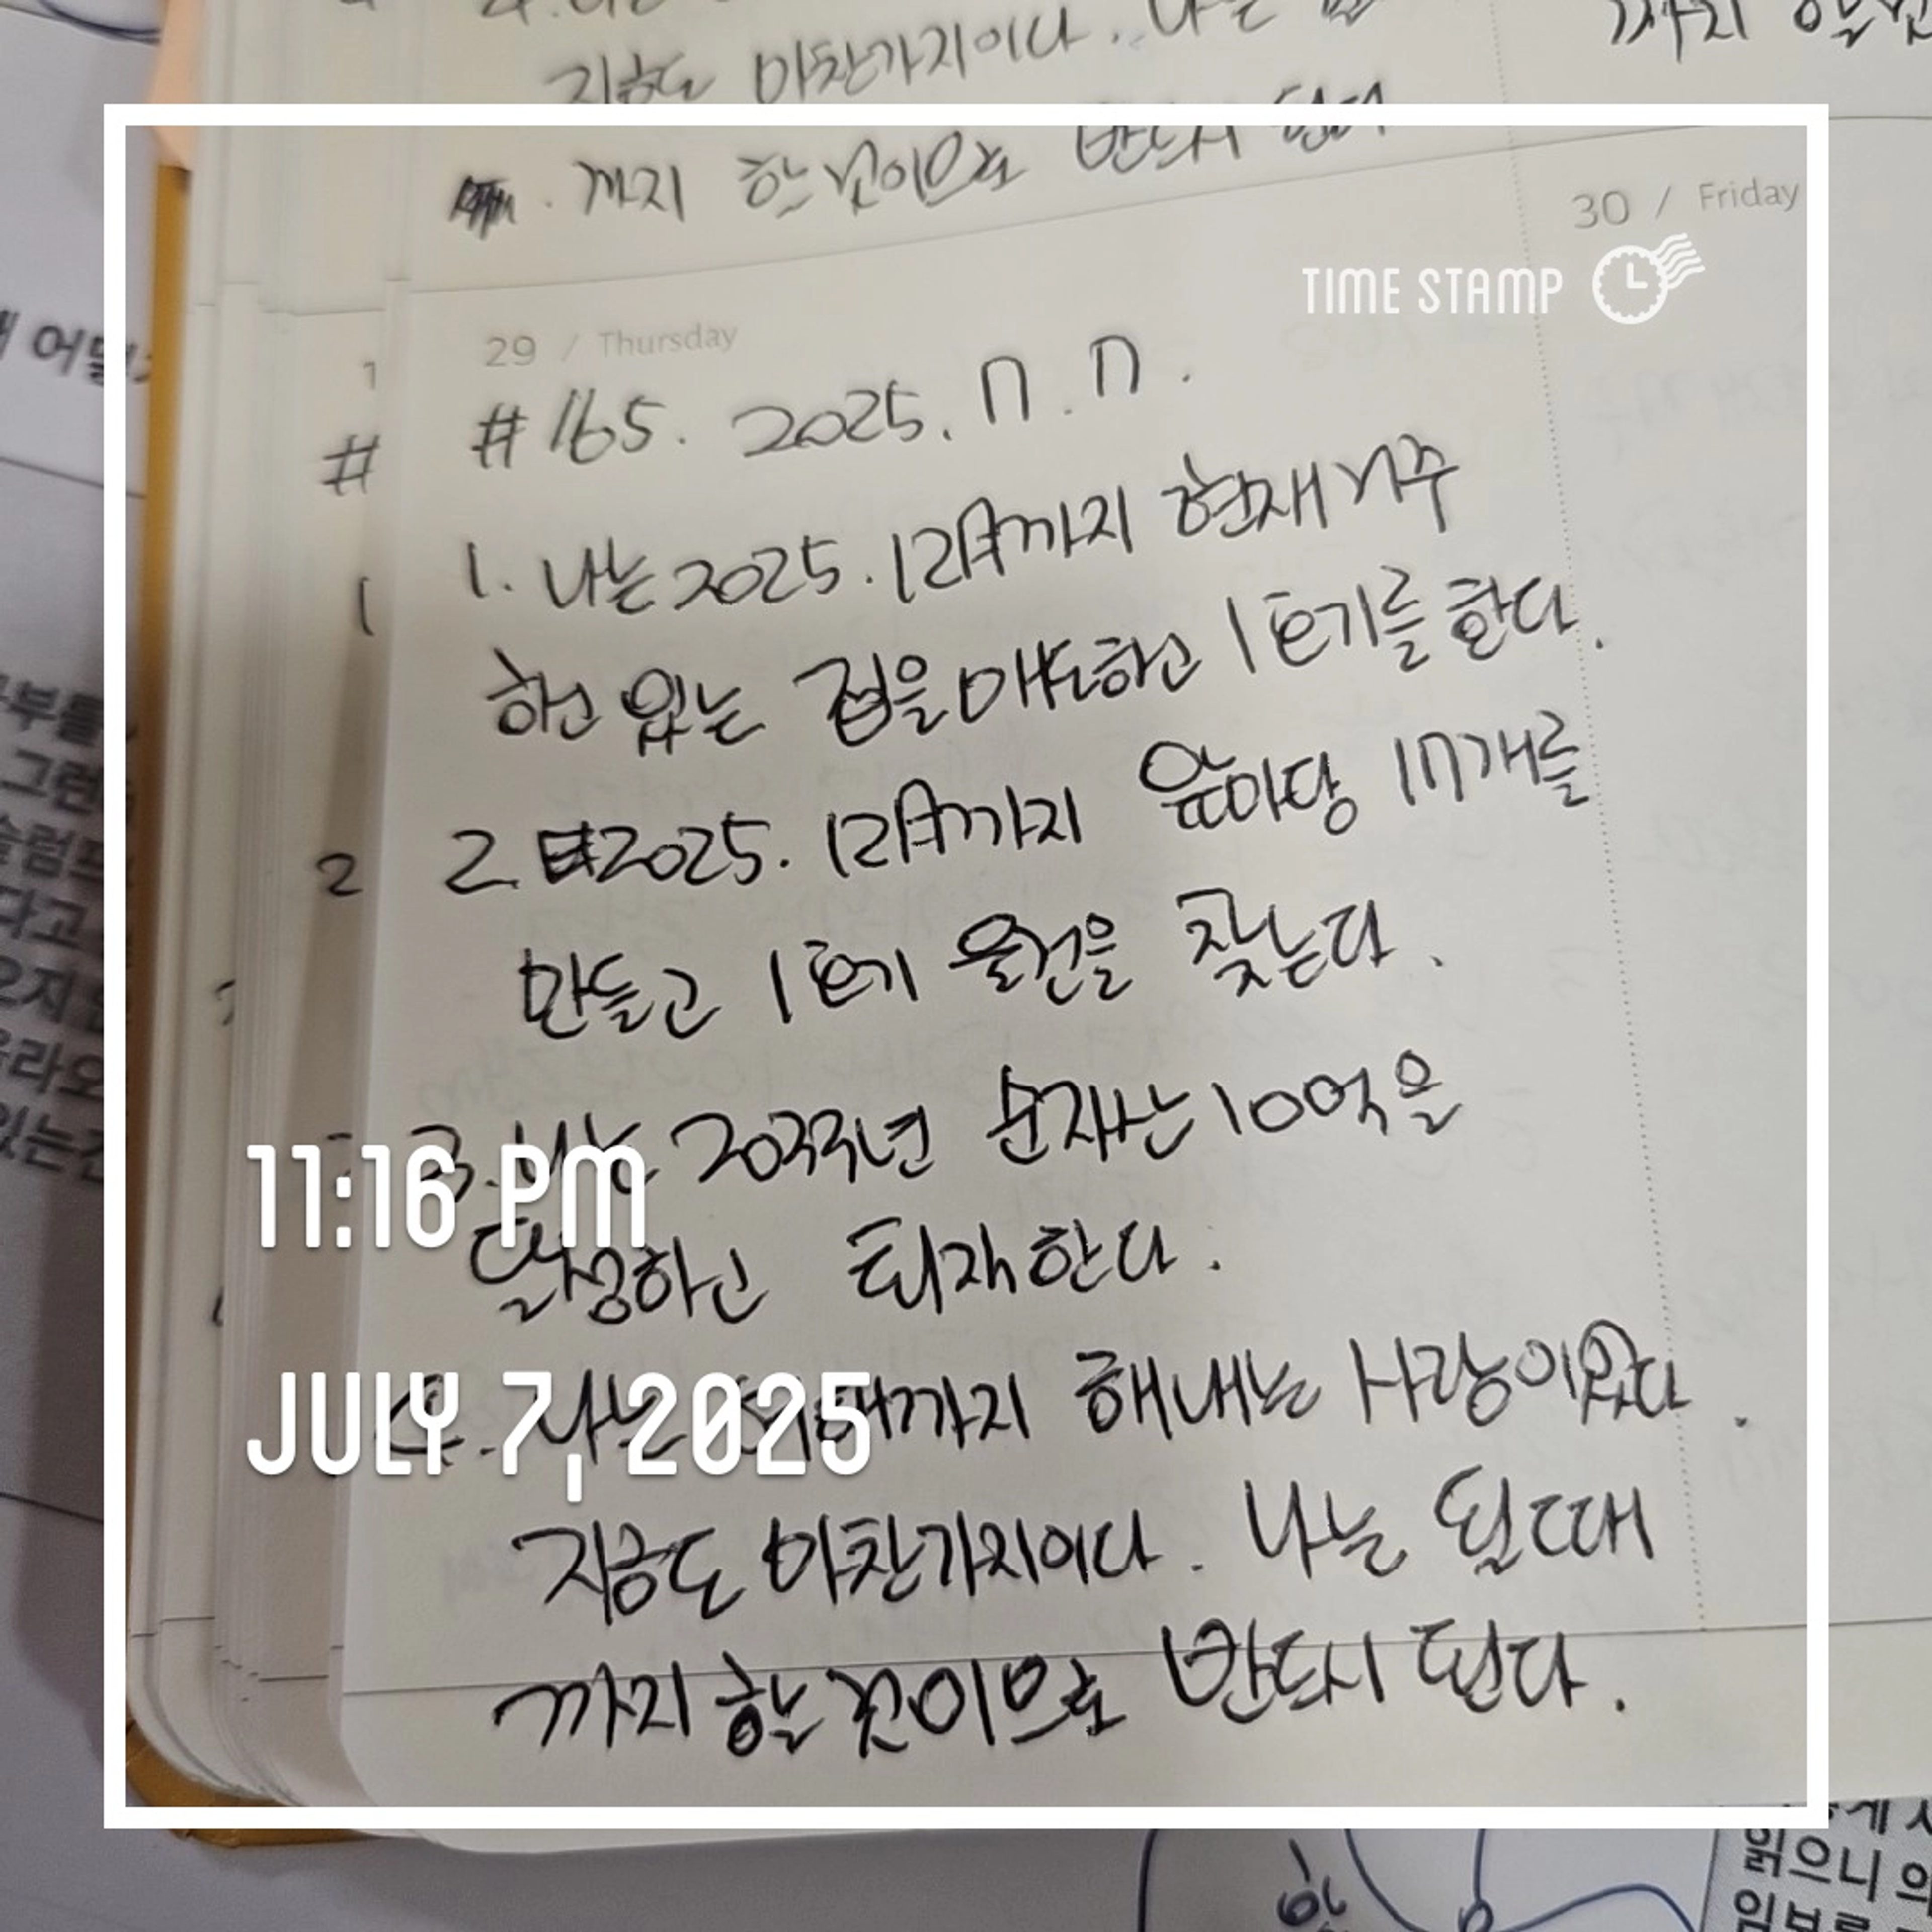 지금도 마찬가지이다. 나는
까지
까지 한 것이므로 반드시 된다
30 / Friday
TIME STAMP
29 / Thursday
#165. 2025. 7. 7.
1. 나는 2025. 12月까지 현재 거주
하고 있는 집을 매도하고 1호기를 한다.
2. 2025. 12月까지 앞마당 17개를
만들고 1호기 물건을 찾는다.
3. 나는 2033년 순자산 10억을
11:16 PM
달성하고 퇴재한다.
나는 까지 해내는 사람이었다.
JULY 7, 2025
지금도 마찬가지이다. 나는 될 때
까지 하는 것이므로 반드시 된다.
어떻
부를
그런
슬럼프
다고
오지
올라오
있는
읽으니